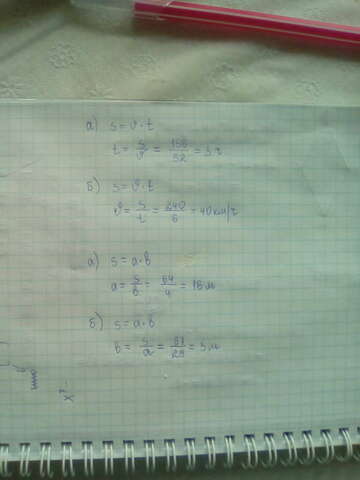 а) s = v · t
t = s/v = 156/52 = 3 ч
б) s = v · t
v = s/t = 240/6 = 40 км/ч
а) s = a · b
a = s/b = 64/4 = 16 м
б) s = a · b
b = s/a = /29 = 3 м
x